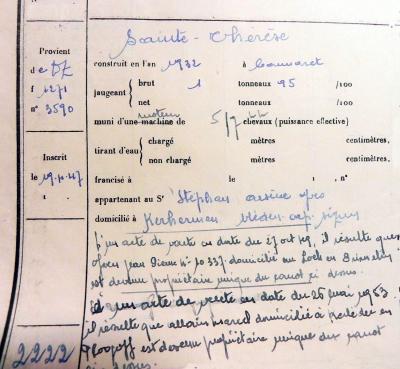 Sainte-Thérèse
Provient
de DZ
f 1271
n° 3590
construit en l'an 1932 à Camaret
jaugeant { brut 1 tonneaux 95 /100
net tonneaux /100
muni d'une machine de moteur 5/7 chevaux (puissance effective)
tirant d'eau { chargé mètres centimètres,
non chargé mètres centimètres.
Inscrit
le 19.11.47
francisé à le , n°
appartenant au Sr Stephan
domicilié à Kerherneau
D'un acte de vente en date du 27 oct 49, il résulte que
Jean domicilié au Loch en
est devenu propriétaire unique du canot ci dessus.
D'un acte de vente en date du 26 mai 1953
il résulte que allain marcel domicilié à en
Plogoff est devenu propriétaire unique du canot
ci dessus.
2222